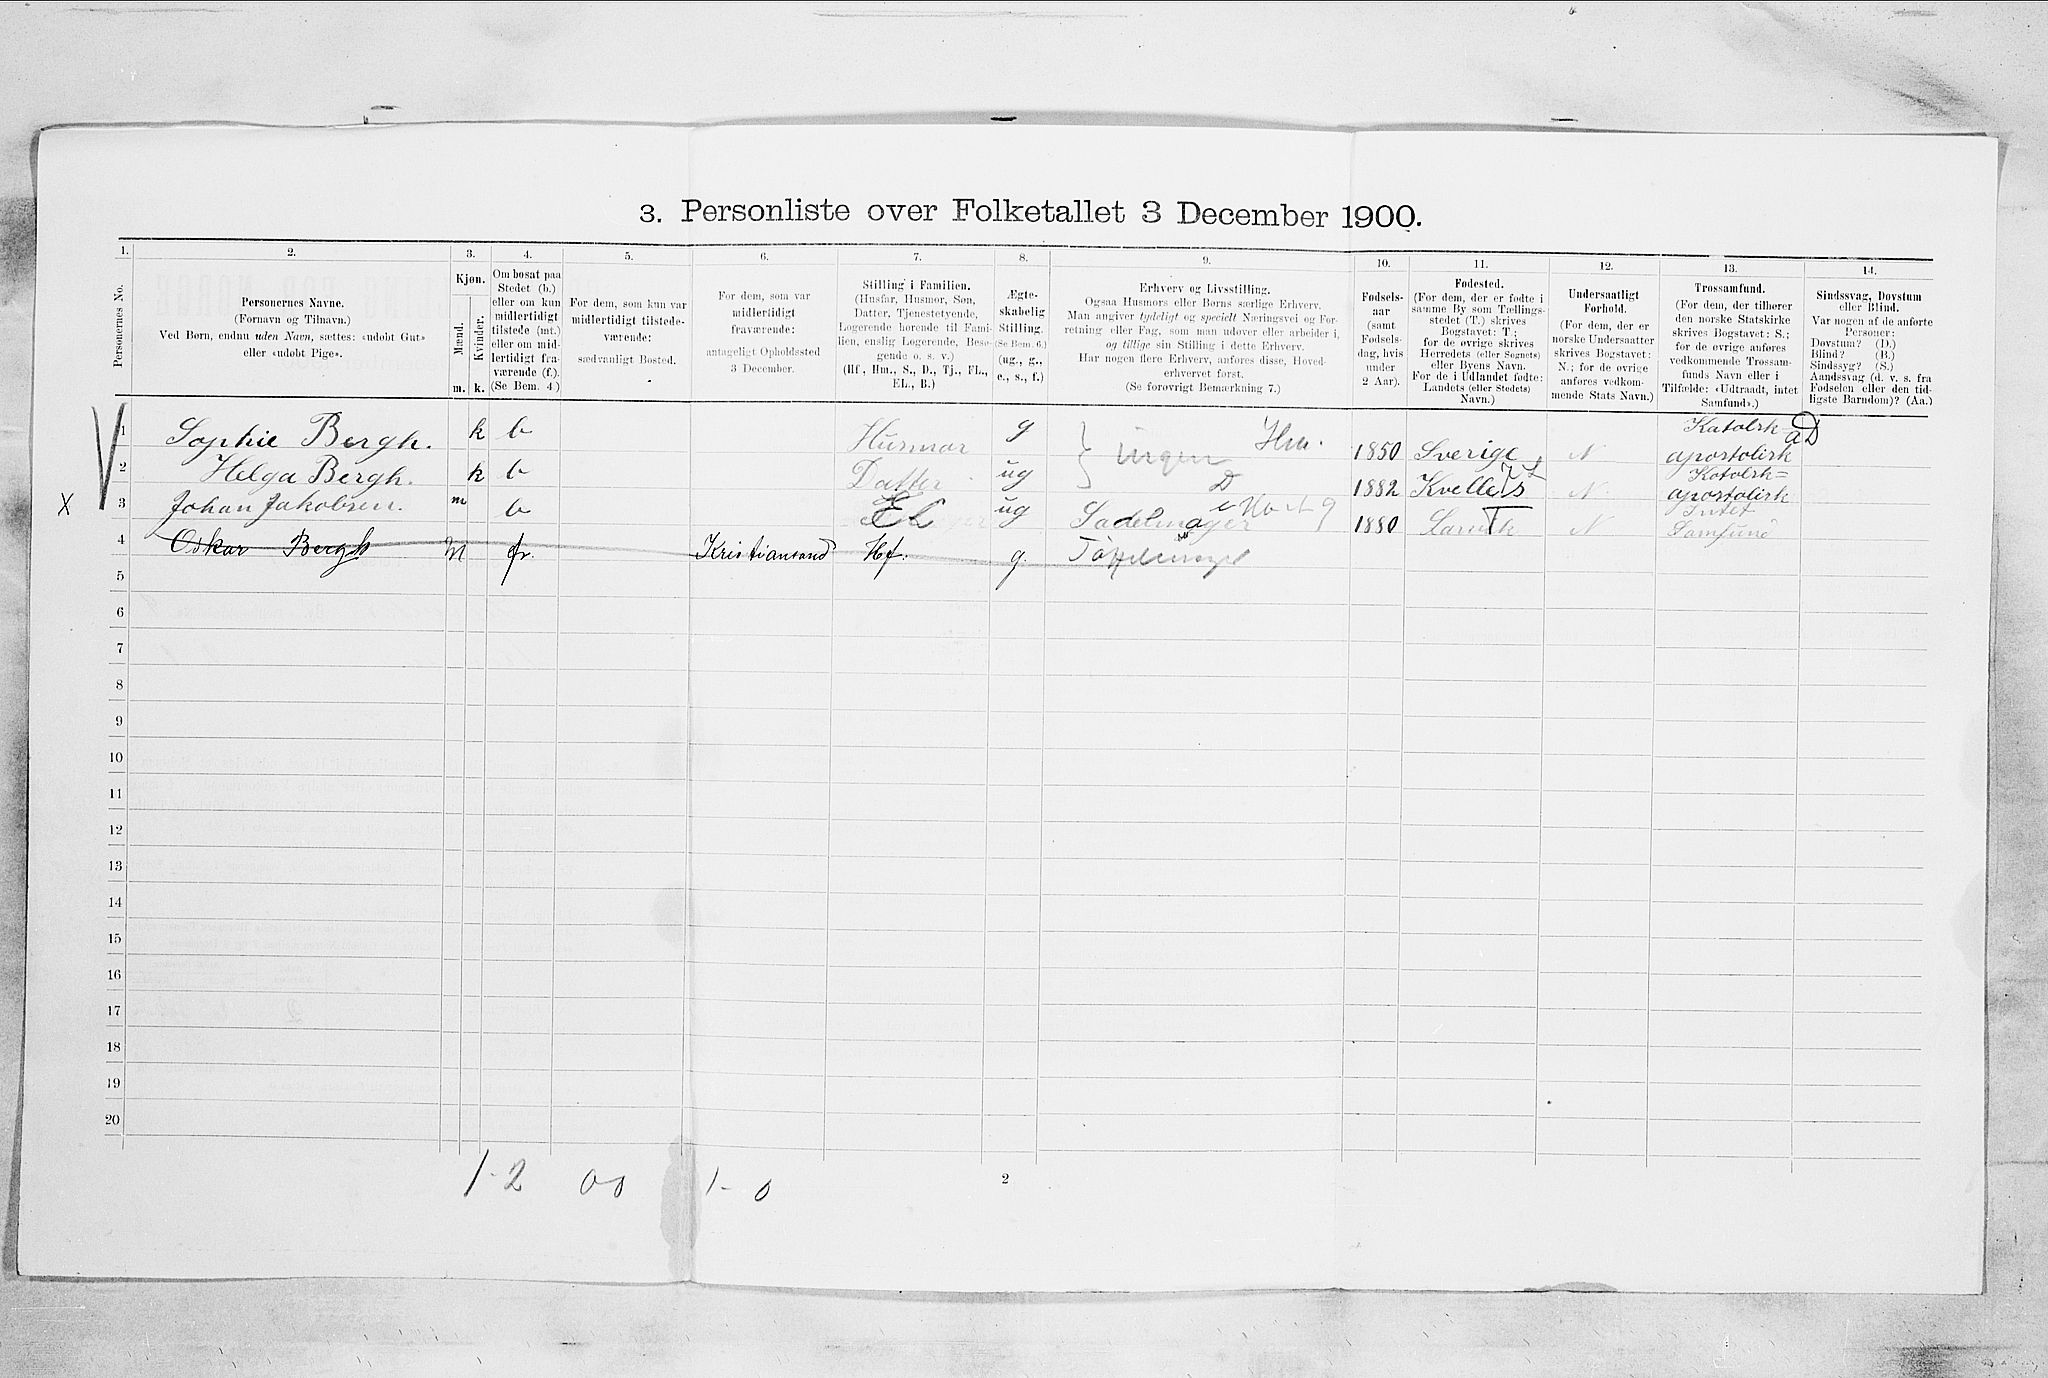 3. Personliste over Folketallet 3 December 1900.
1. 2. 3. 4. 5. 6. 7. 8. 9. 10. 11. 12. 13. 14.
Personernes No.
Personernes Navne.
(Fornavn og Tilnavn.)
Ved Børn, endnu uden Navn, sættes: «udøbt Gut»
eller «udøbt Pige».
Kjøn.
Mænd.
Kvinder.
m. k.
Om bosat paa
Stedet (b.)
eller om kun
midlertidigt
tilstede (mt.)
eller om mid-
lertidigt fra-
værende (f.)
(Se Bem. 4.)
For dem, som kun var
midlertidigt tilstede-
værende:
sædvanligt Bosted.
For dem, som var
midlertidigt
fraværende:
antageligt Opholdssted
3 December.
Stilling i Familien.
(Husfar, Husmor, Søn,
Datter, Tjenestetyende,
Logerende hørende til Fami-
lien, enslig Logerende, Besø-
gende o. s. v.)
(Hf., Hm., S., D., Tj., FL.,
EL., B.)
Ægte-
skabelig
Stilling.
(Se Bem. 6.)
(ug., g.,
e., s., f.)
Erhverv og Livsstilling.
Ogsaa Husmors eller Børns særlige Erhverv.
Man angiver tydeligt og specielt Næringsvei og For-
retning eller Fag, som man udøver eller arbeider i,
og tillige sin Stilling i dette Erhverv.
Har nogen flere Erhverv, anføres disse, Hoved-
erhvervet først.
(Se forøvrigt Bemærkning 7.)
Fødsels-
aar
(samt
Fødsels-
dag, hvis
under
2 Aar).
Fødested.
(For dem, der er fødte i
samme By som Tællings-
stedet (T.) skrives
Bogstavet: T.;
for de øvrige skrives
Herredets (eller Sognets)
eller Byens Navn.
For de i Udlandet fødte:
Landets (eller Stedets)
Navn.)
Undersaatligt
Forhold.
(For dem, der er
norske Undersaatter
skrives Bogstavet:
N.; for de øvrige
anføres vedkom-
mende Stats Navn.)
Trossamfund.
(For dem, der tilhører
den norske Statskirke
skrives Bogstavet: S.;
for de øvrige anføres
vedkommende Trossam-
funds Navn eller i
Tilfælde: «Udtraadt, intet
Samfund».)
Sindssvag, Døvstum
eller Blind.
Var nogen af de anførte
Personer:
Døvstum? (D.)
Blind? (B.)
Sindssyg? (S.)
Aandssvag (d. v. s. fra
Fødselen eller den tid-
ligste Barndom)? (Aa.)
1 Sophie Bergh. k b Husmor g ingen Hm. 1850 Sverige N Katolsk apostolisk
2 Helga Bergh. k b Datter ug D 1882 Kvelle N Katolsk= apostolisk
X 3 Johan Jakobsen. m b EL ug Sadelmager 1880 Larvik T N Intet Samfund
4 Oskar Bergh M fr. Kristiansand Hf. g. Tøffelmager
5
6
7
8
9
10
11
12
13
14
15
16
17
18
19
20
1-2 00 1-0
2